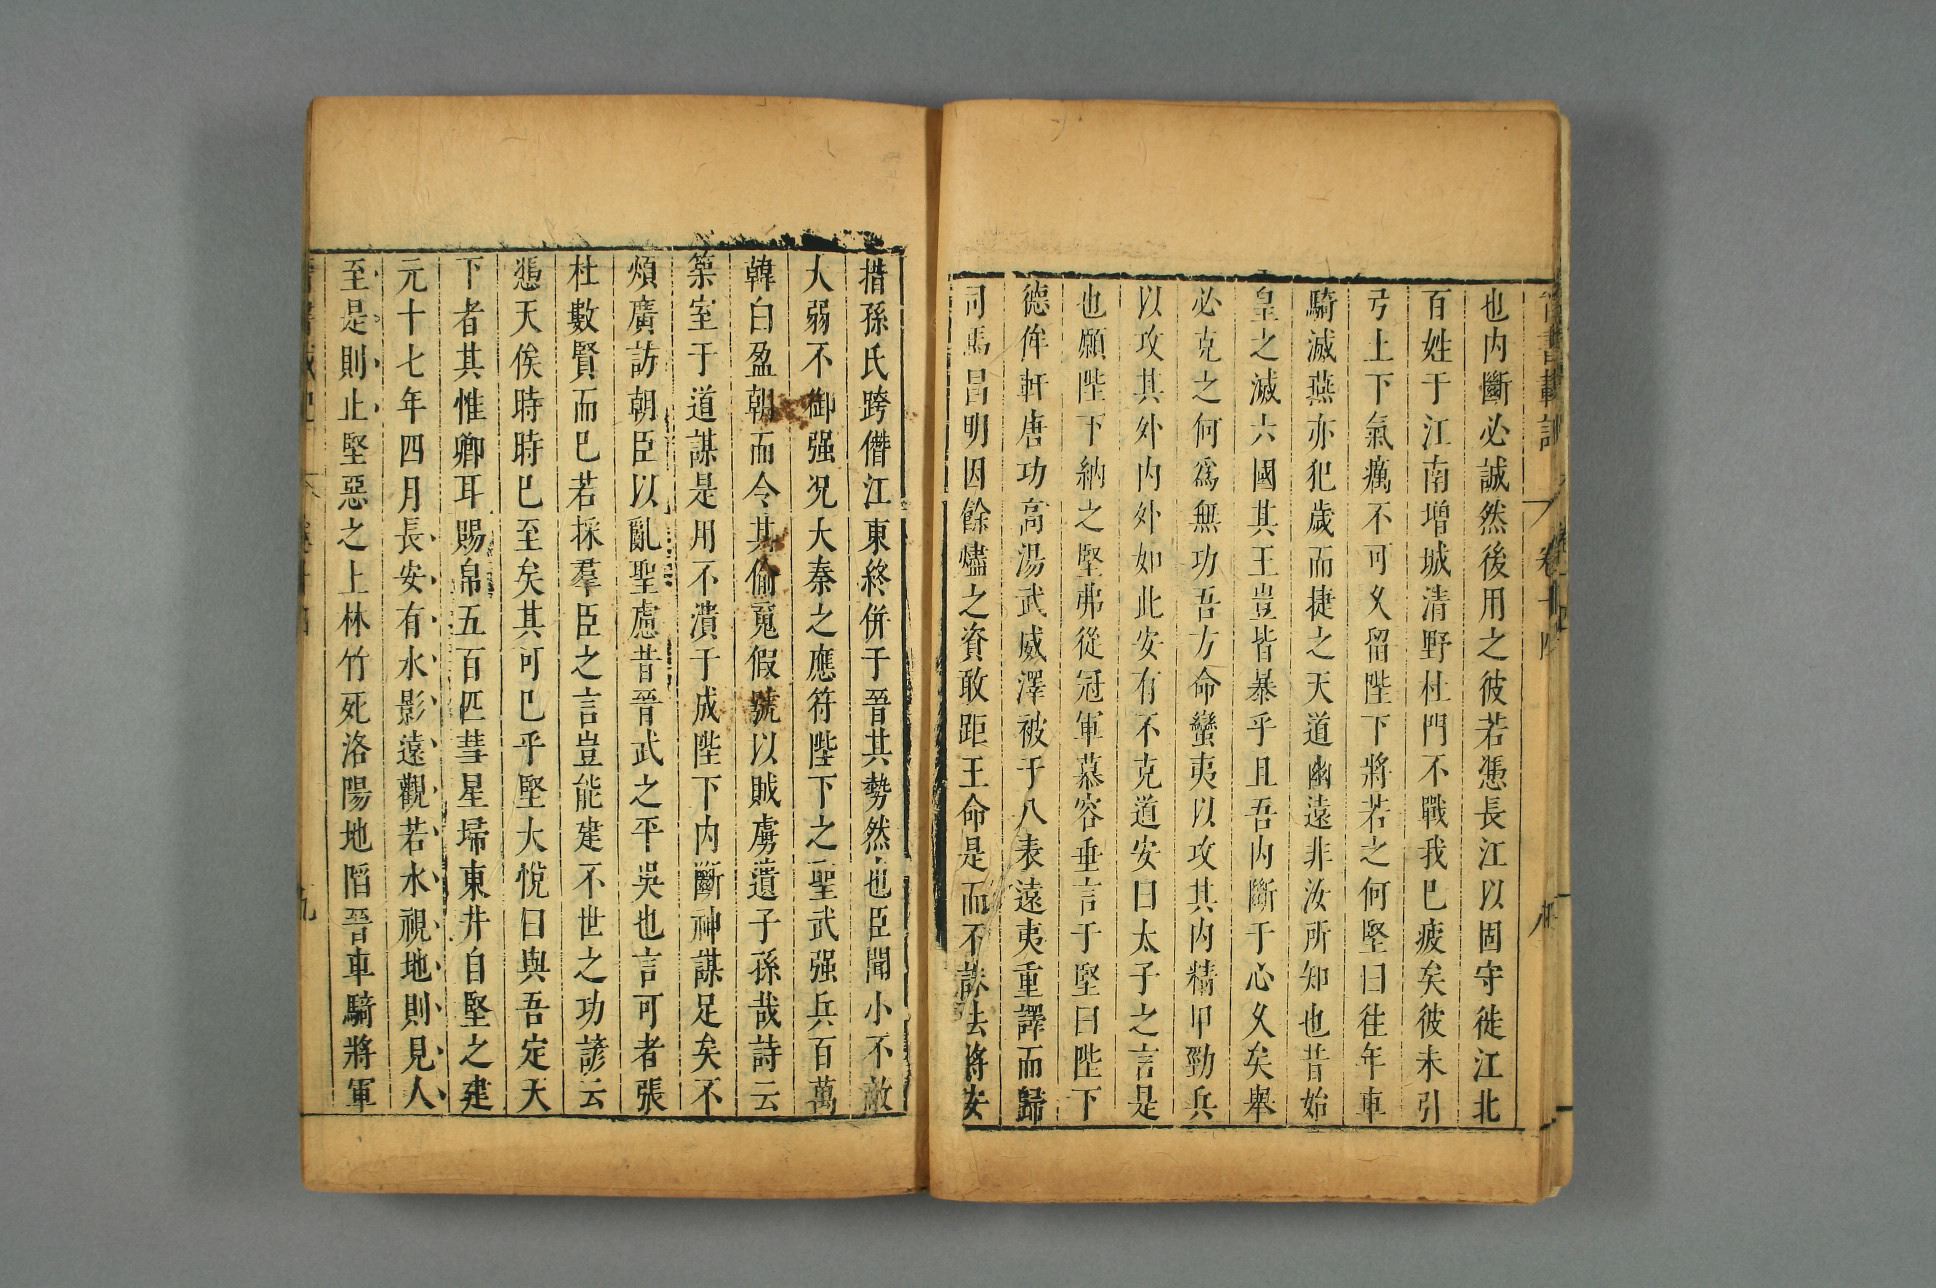 晉書載記 卷十四
也內斷必誠然後用之彼若憑長江以固守徙江北
百姓于江南增城清野杜門不戰我巳疲矣彼未引
弓土下氣癘不可久留陛下將若之何堅曰往年車
騎滅燕亦犯歲而捷之天道幽遠非汝所知也昔始
皇之滅六國其王豈皆暴乎且吾內斷于心久矣舉
必克之何爲無功吾方命蠻夷以攻其內精甲勁兵
以攻其外內外如此安有不克道安曰太子之言是
也願陛下納之堅弗從冠軍慕容垂言于堅曰陛下
德侔軒唐功高湯武威澤被于八表遠夷重譯而歸
司馬昌明因餘燼之資敢距王命是而不誅法將安
措孫氏跨僭江東終併于晉其勢然也臣聞小不敵
大弱不御强况大秦之應符陛下之聖武强兵百萬
韓白盈朝而令其偷䰟假號以賊虜遺子孫哉詩云
築室于道謀是用不潰于成陛下內斷神謀足矣不
煩廣訪朝臣以亂聖慮昔晉武之平吳也言可者張
杜數賢而巳若採羣臣之言豈能建不世之功諺云
憑天俟時時巳至矣其可巳乎堅大悅曰與吾定天
下者其惟卿耳賜帛五百匹彗星掃東井自堅之建
元十七年四月長安有水影遠觀若水視地則見人
至是則止堅惡之上林竹死洛陽地陷晉車騎將軍
晉書載記 卷十四 九